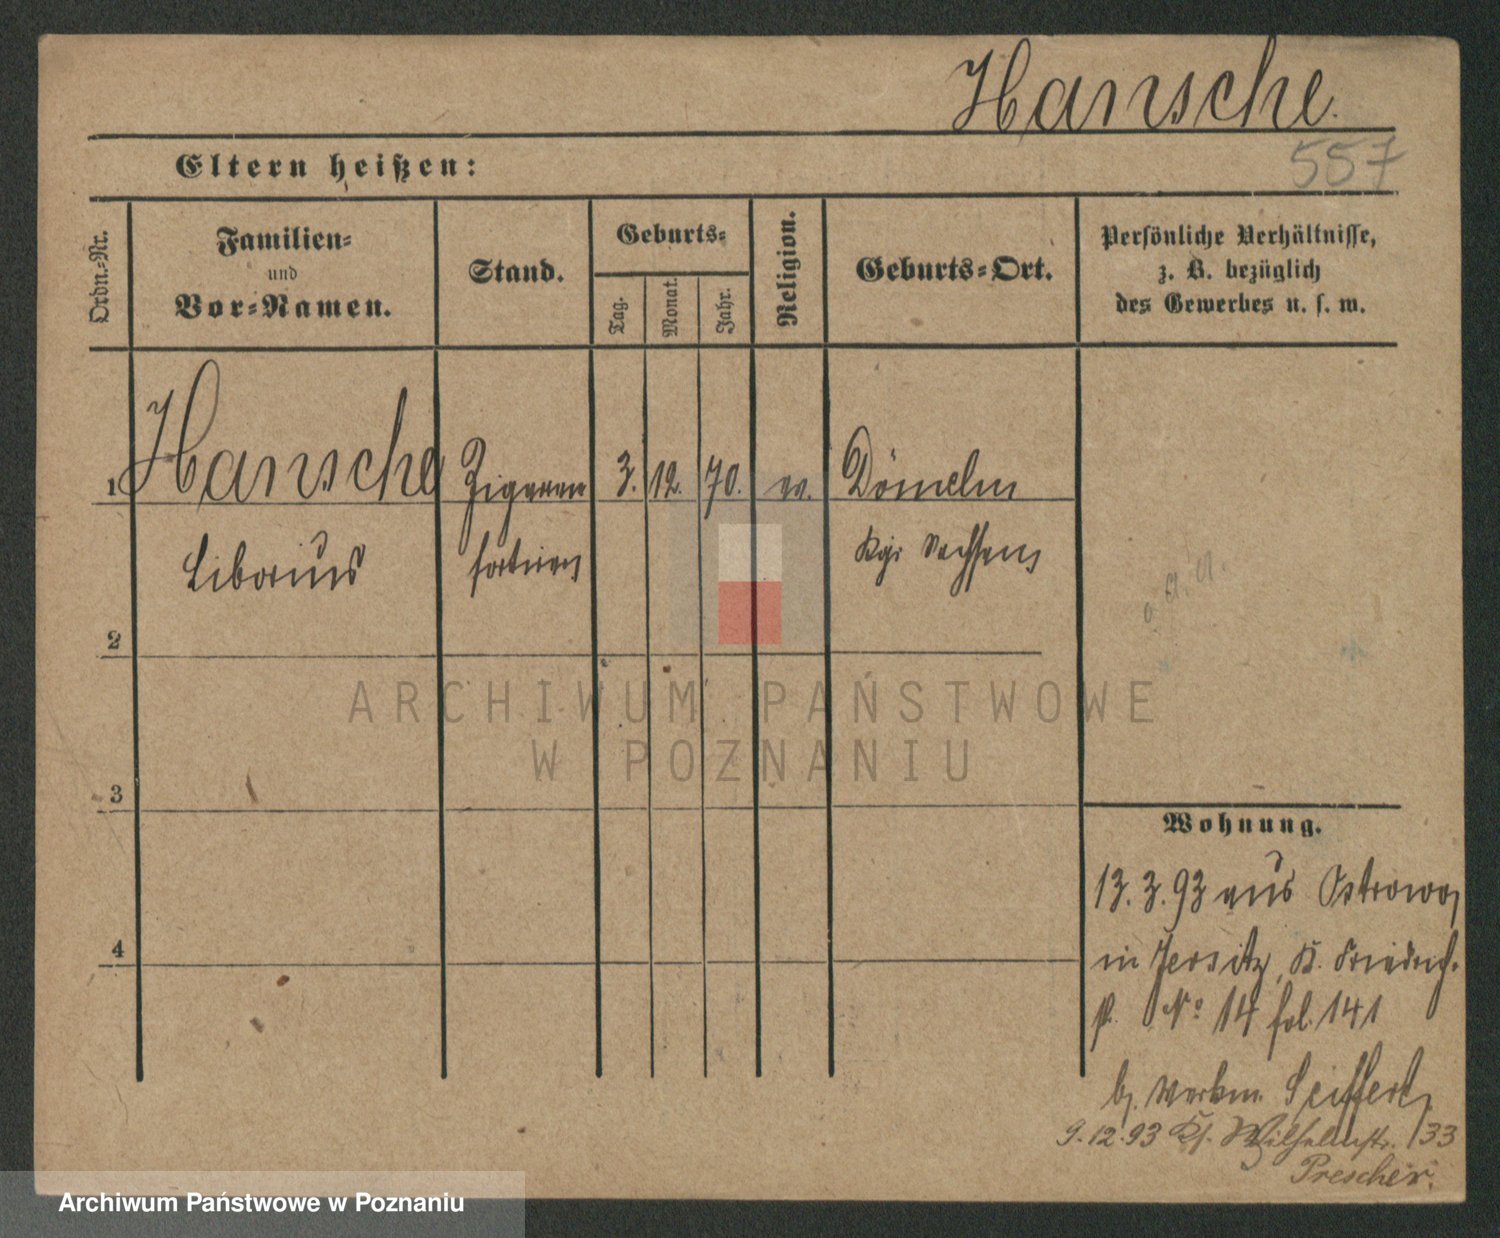 Hansche.
557
Eltern heißen:
Ordn.-Nr.
Familien-
und
Vor-Namen.
Stand.
Geburts-
Tag.
Monat.
Jahr.
Religion.
Geburts-Ort.
Persönliche Verhältnisse,
z. B. bezüglich
des Gewerbes u. s. w.
1 Hansche Zigarren 3. 12. 70. ev.
Liborius Kgr Sachsens
2
3
4
ARCHIWUM PAŃSTWOWE
W POZNANIU
Wohnung.
13. 3. 93 aus Ostrowo
in Jersitz, K. Friedrich
No 14 fol. 141
b. Werkm. Seiffert,
9.12.93 Ks. Wilhelmstr. 33
Prescher.
Archiwum Państwowe w Poznaniu